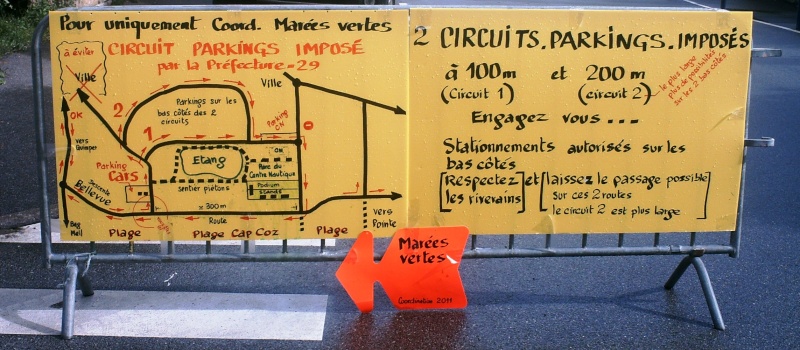 Pour uniquement Coord. Marées vertes
CIRCUIT PARKINGS IMPOSÉ
par la Préfecture=29
à éviter
Ville
Ville
OK
2
1
Parkings sur les
bas côtés des 2
circuits
Parking
CN
vers
Quimper
Parking
Cars
Etang
CN
Parc du
Centre Nautique
Podium
STANDS
sentier piétons
Descente
Bellevue
≈ 300 m
Route
Beg
Meil
Plage
Plage Cap Coz
Plage
vers
Pointe
2 CIRCUITS.PARKINGS.IMPOSÉS
à 100m et 200 m
(Circuit 1) (circuit 2)
le plus large
plus de possibilités
sur les 2 bas côtés
Engagez vous ...
Stationnements autorisés sur les
bas côtés
[Respectez] et [laissez le passage possible]
les riverains
sur ces 2 routes
le circuit 2 est plus large
Marées
vertes
Coordination 2011